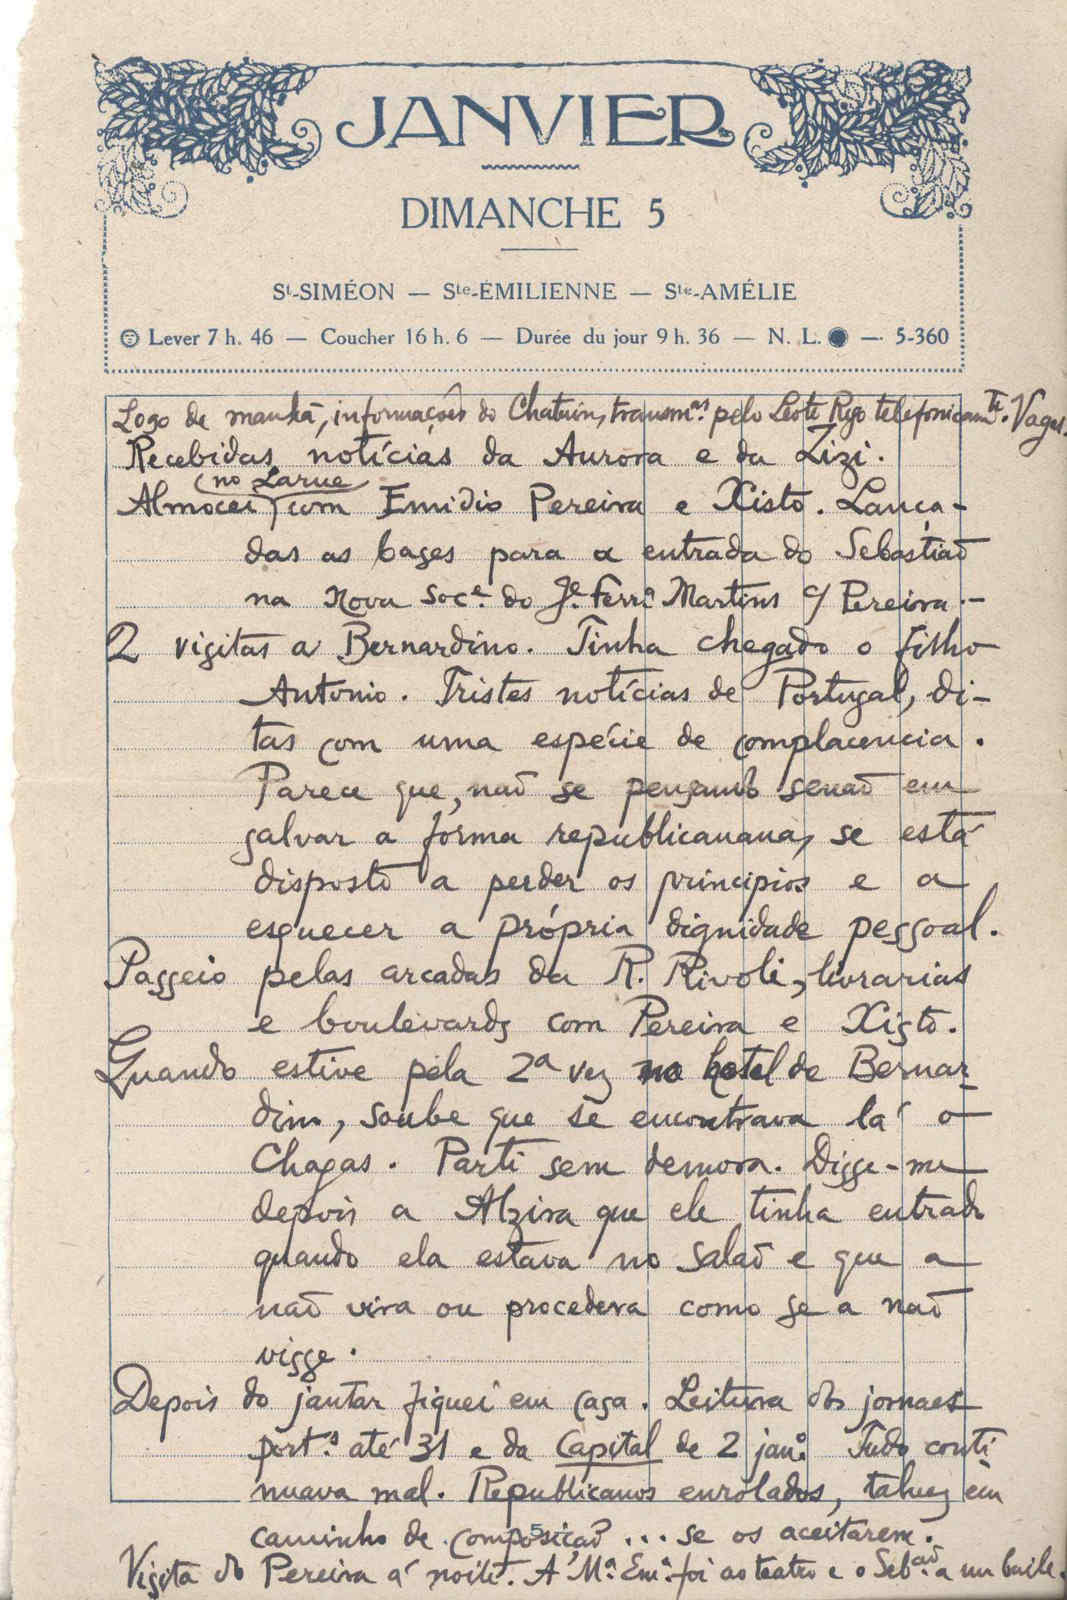 JANVIER
DIMANCHE 5
St-SIMÉON — Ste-ÉMILIENNE — Ste-AMÉLIE
Lever 7 h. 46 — Coucher 16 h. 6 — Durée du jour 9 h. 36 — N. L. — 5-360
Logo de manhã, informações do Chatuin, transm.as pelo Leote Rego telefonicamte. Vagas.
Recebidas notícias da Aurora e da Zizi.
(no Larue)
Almocei com Emidio Pereira e Xisto. Lança-
das as bases para a entrada do Sebastião
na Nova Soce. do Je. Ferra Martins c/ Pereira.-
2 visitas a Bernardino. Tinha chegado o filho
Antonio. Tristes notícias de Portugal, di-
tas com uma espécie de complacencia.
Parece que, não se pensando senão em
salvar a forma republicanana, se está
disposto a perder os principios e a
esquecer a própria dignidade pessoal.
Passeio pelas arcadas da R. Rivoli, livrarias
e boulevards com Pereira e Xisto.
Quando estive pela 2a vez no hotel de Bernar-
dino, soube que se encontrava lá o
Chagas. Parti sem demora. Disse-me
depois a Alzira que ele tinha entrado
quando ela estava no salão e que a
não vira ou procedera como se a não
visse.
Depois do jantar fiquei em casa. Leitura dos jornaes
port.s até 31 e da Capital de 2 jan.o Tudo conti-
nuava mal. Republicanos enrolados, talvez em
caminho de composição ... se os aceitarem.
5
Visita do Pereira á noite. A Ma. Ema. foi ao teatro e o Sebão. a um baile.